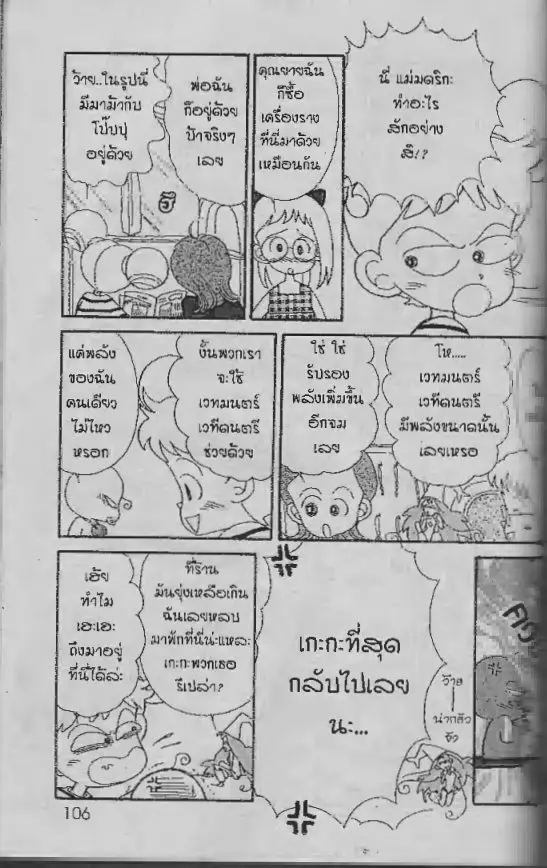 ว้าย..ในรูปนี้
มีมาม้ากับ
โป๊บปุ
อยู่ด้วย
พ่อฉัน
ก็อยู่ด้วย
ป้าจริงๆ
เลย
คุณยายฉัน
ก็ซื้อ
เครื่องราง
ที่นี่มาด้วย
เหมือนกัน
นี่ แม่มดริกะ
ทำอะไร
สักอย่าง
สิ!?
แค่พลัง
ของฉัน
คนเดียว
ไม่ไหว
หรอก
งั้นพวกเรา
จะใช้
เวทมนตร์
เวทีดนตรี
ช่วยด้วย
ใช่ ใช่
รับรอง
พลังเพิ่มขึ้น
อีกจม
เลย
โห.....
เวทมนตร์
เวทีดนตรี
มีพลังขนาดนั้น
เลยเหรอ
เฮ้ย
ทำไม
เฮะเฮะ
ถึงมาอยู่
ที่นี่ได้ล่ะ
ที่ร้าน
มันยุ่งเหลือเกิน
ฉันเลยหลบ
มาพักที่นี่น่ะแหละ
เกะกะพวกเธอ
รึเปล่า?
เกะกะที่สุด
กลับไปเลย
นะ...
ว้าย
น่ากลัว
จัง
106